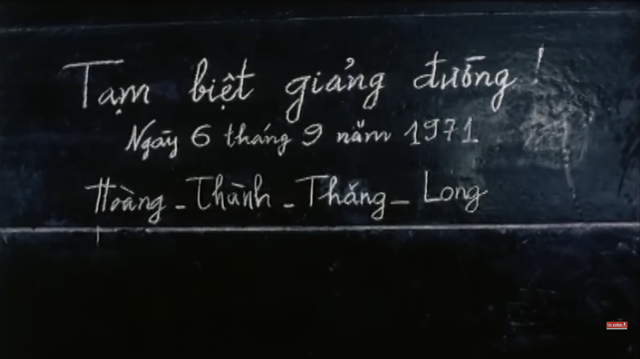 Tạm biệt giảng đường!
Ngày 6 tháng 9 năm 1971
Hoàng - Thành - Thăng - Long